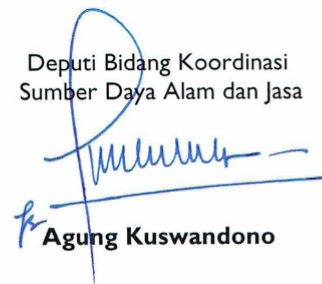 Deputi Bidang Koordinasi
Sumber Daya Alam dan Jasa
Agung Kuswandono